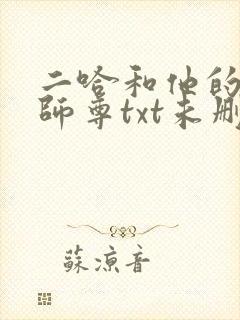 二哈和他的
師尊txt未刪
蘇涼音